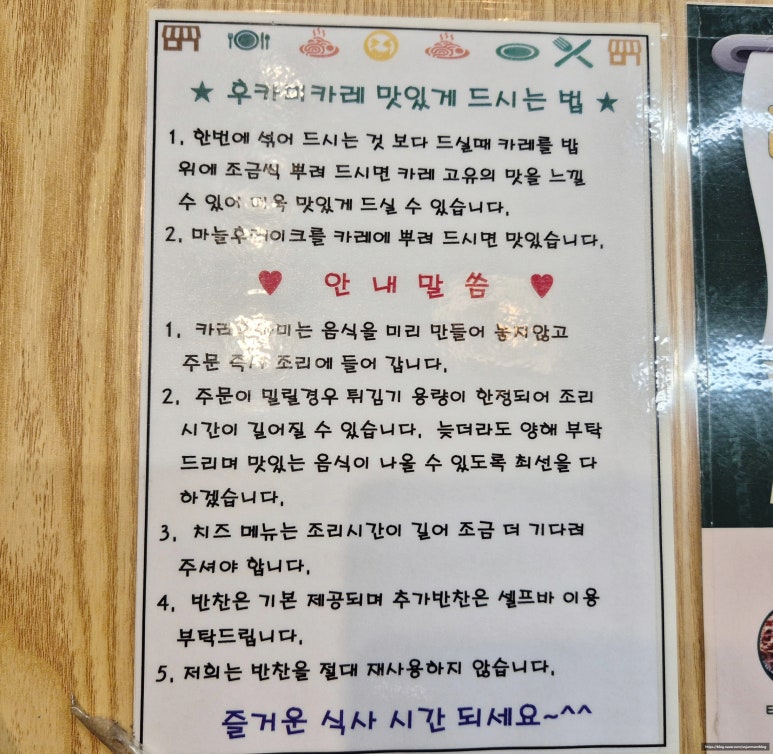 ★ 후카미카레 맛있게 드시는 법 ★
1. 한번에 섞어 드시는 것 보다 드실때 카레를 밥
위에 조금씩 뿌려 드시면 카레 고유의 맛을 느낄
수 있어 더욱 맛있게 드실 수 있습니다.
2. 마늘후레이크를 카레에 뿌려 드시면 맛있습니다.
♥ 안 내 말 씀 ♥
1. 음식을 미리 만들어 놓지않고
주문 즉시 조리에 들어 갑니다.
2. 주문이 밀릴경우 튀김기 용량이 한정되어 조리
시간이 길어질 수 있습니다. 늦더라도 양해 부탁
드리며 맛있는 음식이 나올 수 있도록 최선을 다
하겠습니다.
3. 치즈 메뉴는 조리시간이 길어 조금 더 기다려
주셔야 합니다.
4. 반찬은 기본 제공되며 추가반찬은 셀프바 이용
부탁드립니다.
5. 저희는 반찬을 절대 재사용하지 않습니다.
즐거운 식사 시간 되세요~^^